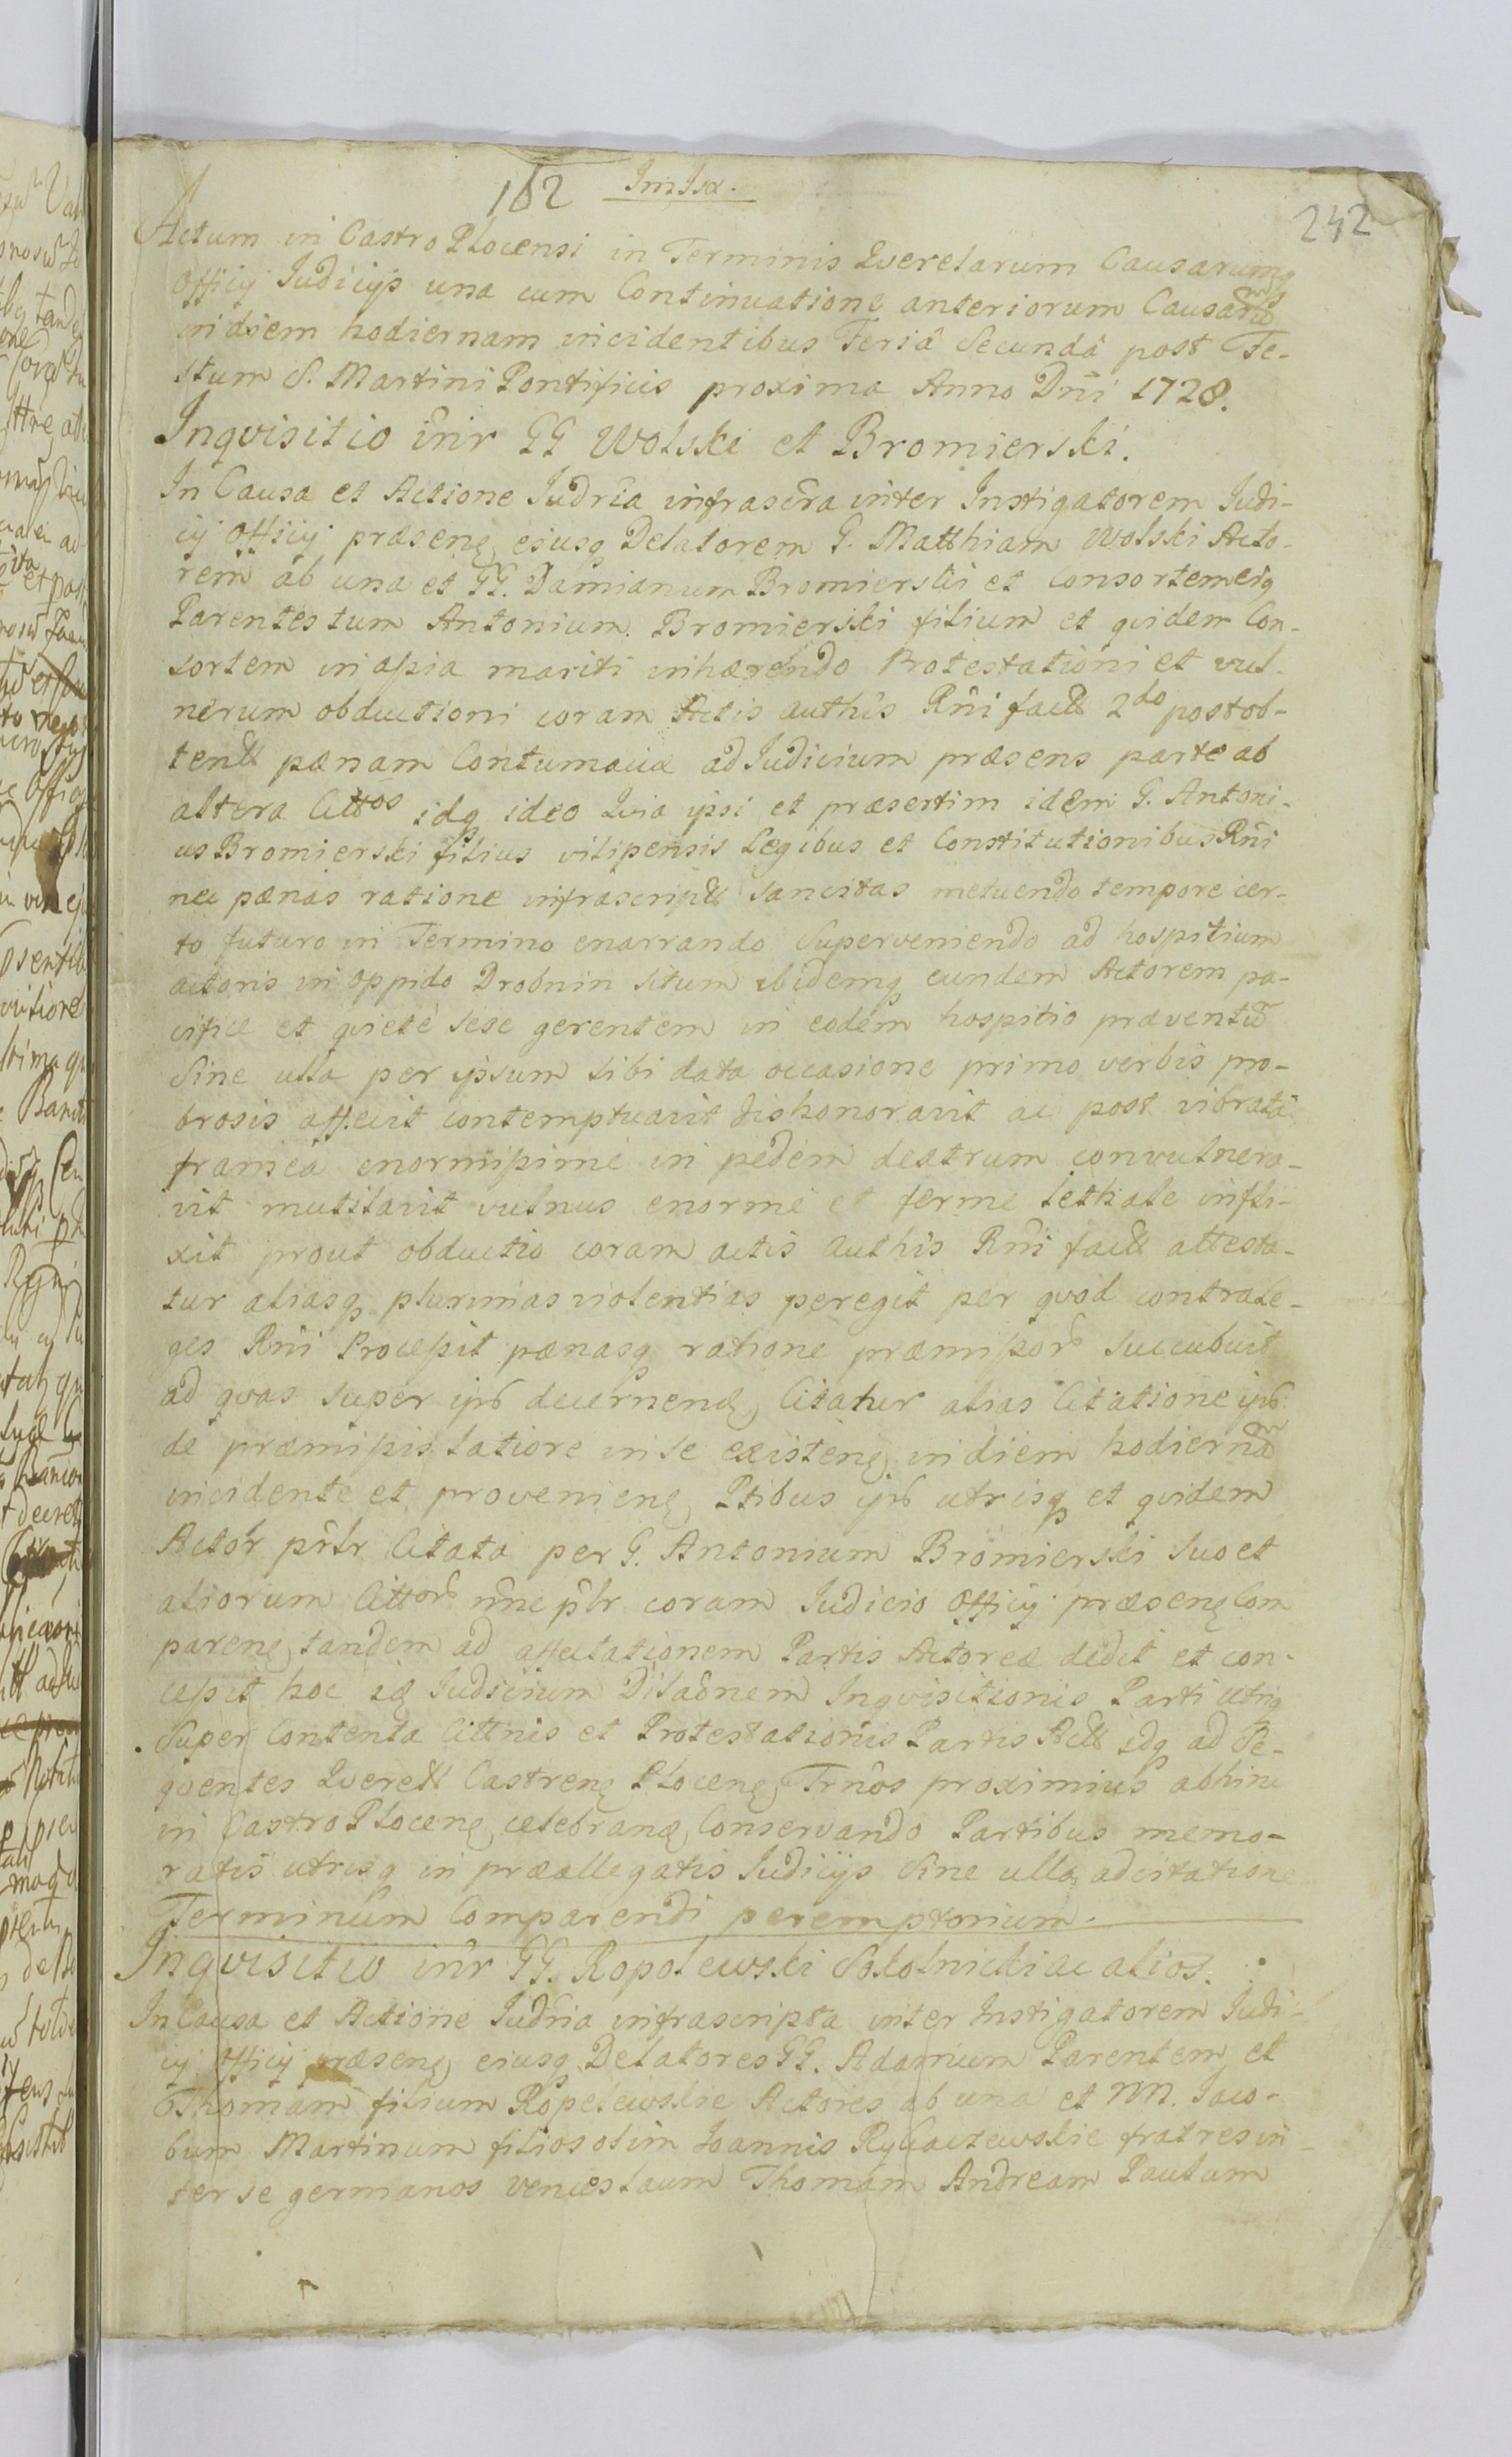 162 ImJsa.
242
Actum in Castro Plocensi in Terminis Querelarum Causarumq
Officij Judicijs una cum Continuatione anteriorum Causarũ
in diem hodiernam incidentibus Feriâ Secundâ post Fe-
stum S. Martini Pontificis proxima Anno Dñi 1728.
Inqvisitio inr GG Wolski et Bromierski.
In Causa et Actione Judria infrascra inter Instigatorem Judi-
cij Officij præsenę ejusq Delatorem G. Matthiam Wolski Acto-
rem ab una et GG. Damianum Bromierski et Consortem eiq
Parentes tum Antonium Bromierski filium et qvidem Con-
sortem in assia mariti inhærendo Protestationi et vul-
nerum obductioni coram Actis authis Rñi fact 2do post ob-
tent pænam Contumaciæ ad Judicium præsens parte ab
altera Cittos idq ideo Qvia ipsi et præsertim idem G. Antoni-
us Bromierski filius vilipensis Legibus et Constitutionibus Rñi
nec pænas ratione infrascript sancitas metuendo tempore cer-
to futuro in Termino enarrando superveniendo ad hospitium
actoris in oppido Drobnin situm ibidemq eundem Actorem pa-
cifice et qviete sese gerentem in eodem hospitio præventũ
Sine ulla per ipsum sibi data occasione primo verbis pro-
brosis affecit contemptuavit dishonoravit ac post vibratâ
frameâ enormissime in pedem dextrum convulnera-
vit mutilavit vulnus enorme et ferme lethale infli-
xit prout obductio coram actis authis Rñi fact attesta-
tur aliasq plurimas violentias peregit per qvod contra le-
ges Rñi Processit pænasq ratione præmissorũ succubuit
ad qvas super ipso decernendę Citatur alias Citatione ipso
de præmissis latiore in se existenę in diem hodiernã
incidente et provenienę Ptibus ipso utrisq et qvidem
Actor prlr Citata per G. Antonium Bromierski suo et
aliorum Cittorũ nñe plr coram Judicio Officij præsenę Com
parenę tandem ad affectationem Partis Actoreæ dedit et con-
cessit hoc idę Judicium Dilaõnem Inqvisitionis Parti utriq
Super Contenta Cittnis et Protestationis Partis Act idq ad Se-
qventes Querelt Castrenę Plocenę Trños proximius abhinc
in Castro Plocenę celebrandę Conservando Partibus memo-
ratis utrisq in præallegatis Judicijs Sine ulla adcitatione
Terminum Comparendi peremptorium.
Inqvisitio inr GG. Ropolewski Sokolnicki ac alios.
In Causa et Actione Judria infrascripta inter Instigatorem Judi-
cij Officij præsenę ejusq Delatores GG. Adamum Parentem et
Thomam filium Ropelewskie Actores ab una et NN. Jaco-
bum Martinum filios olim Joannis Rycaczewskie fratres in-
ter se germanos venceslaum Thomam Andream Paulum